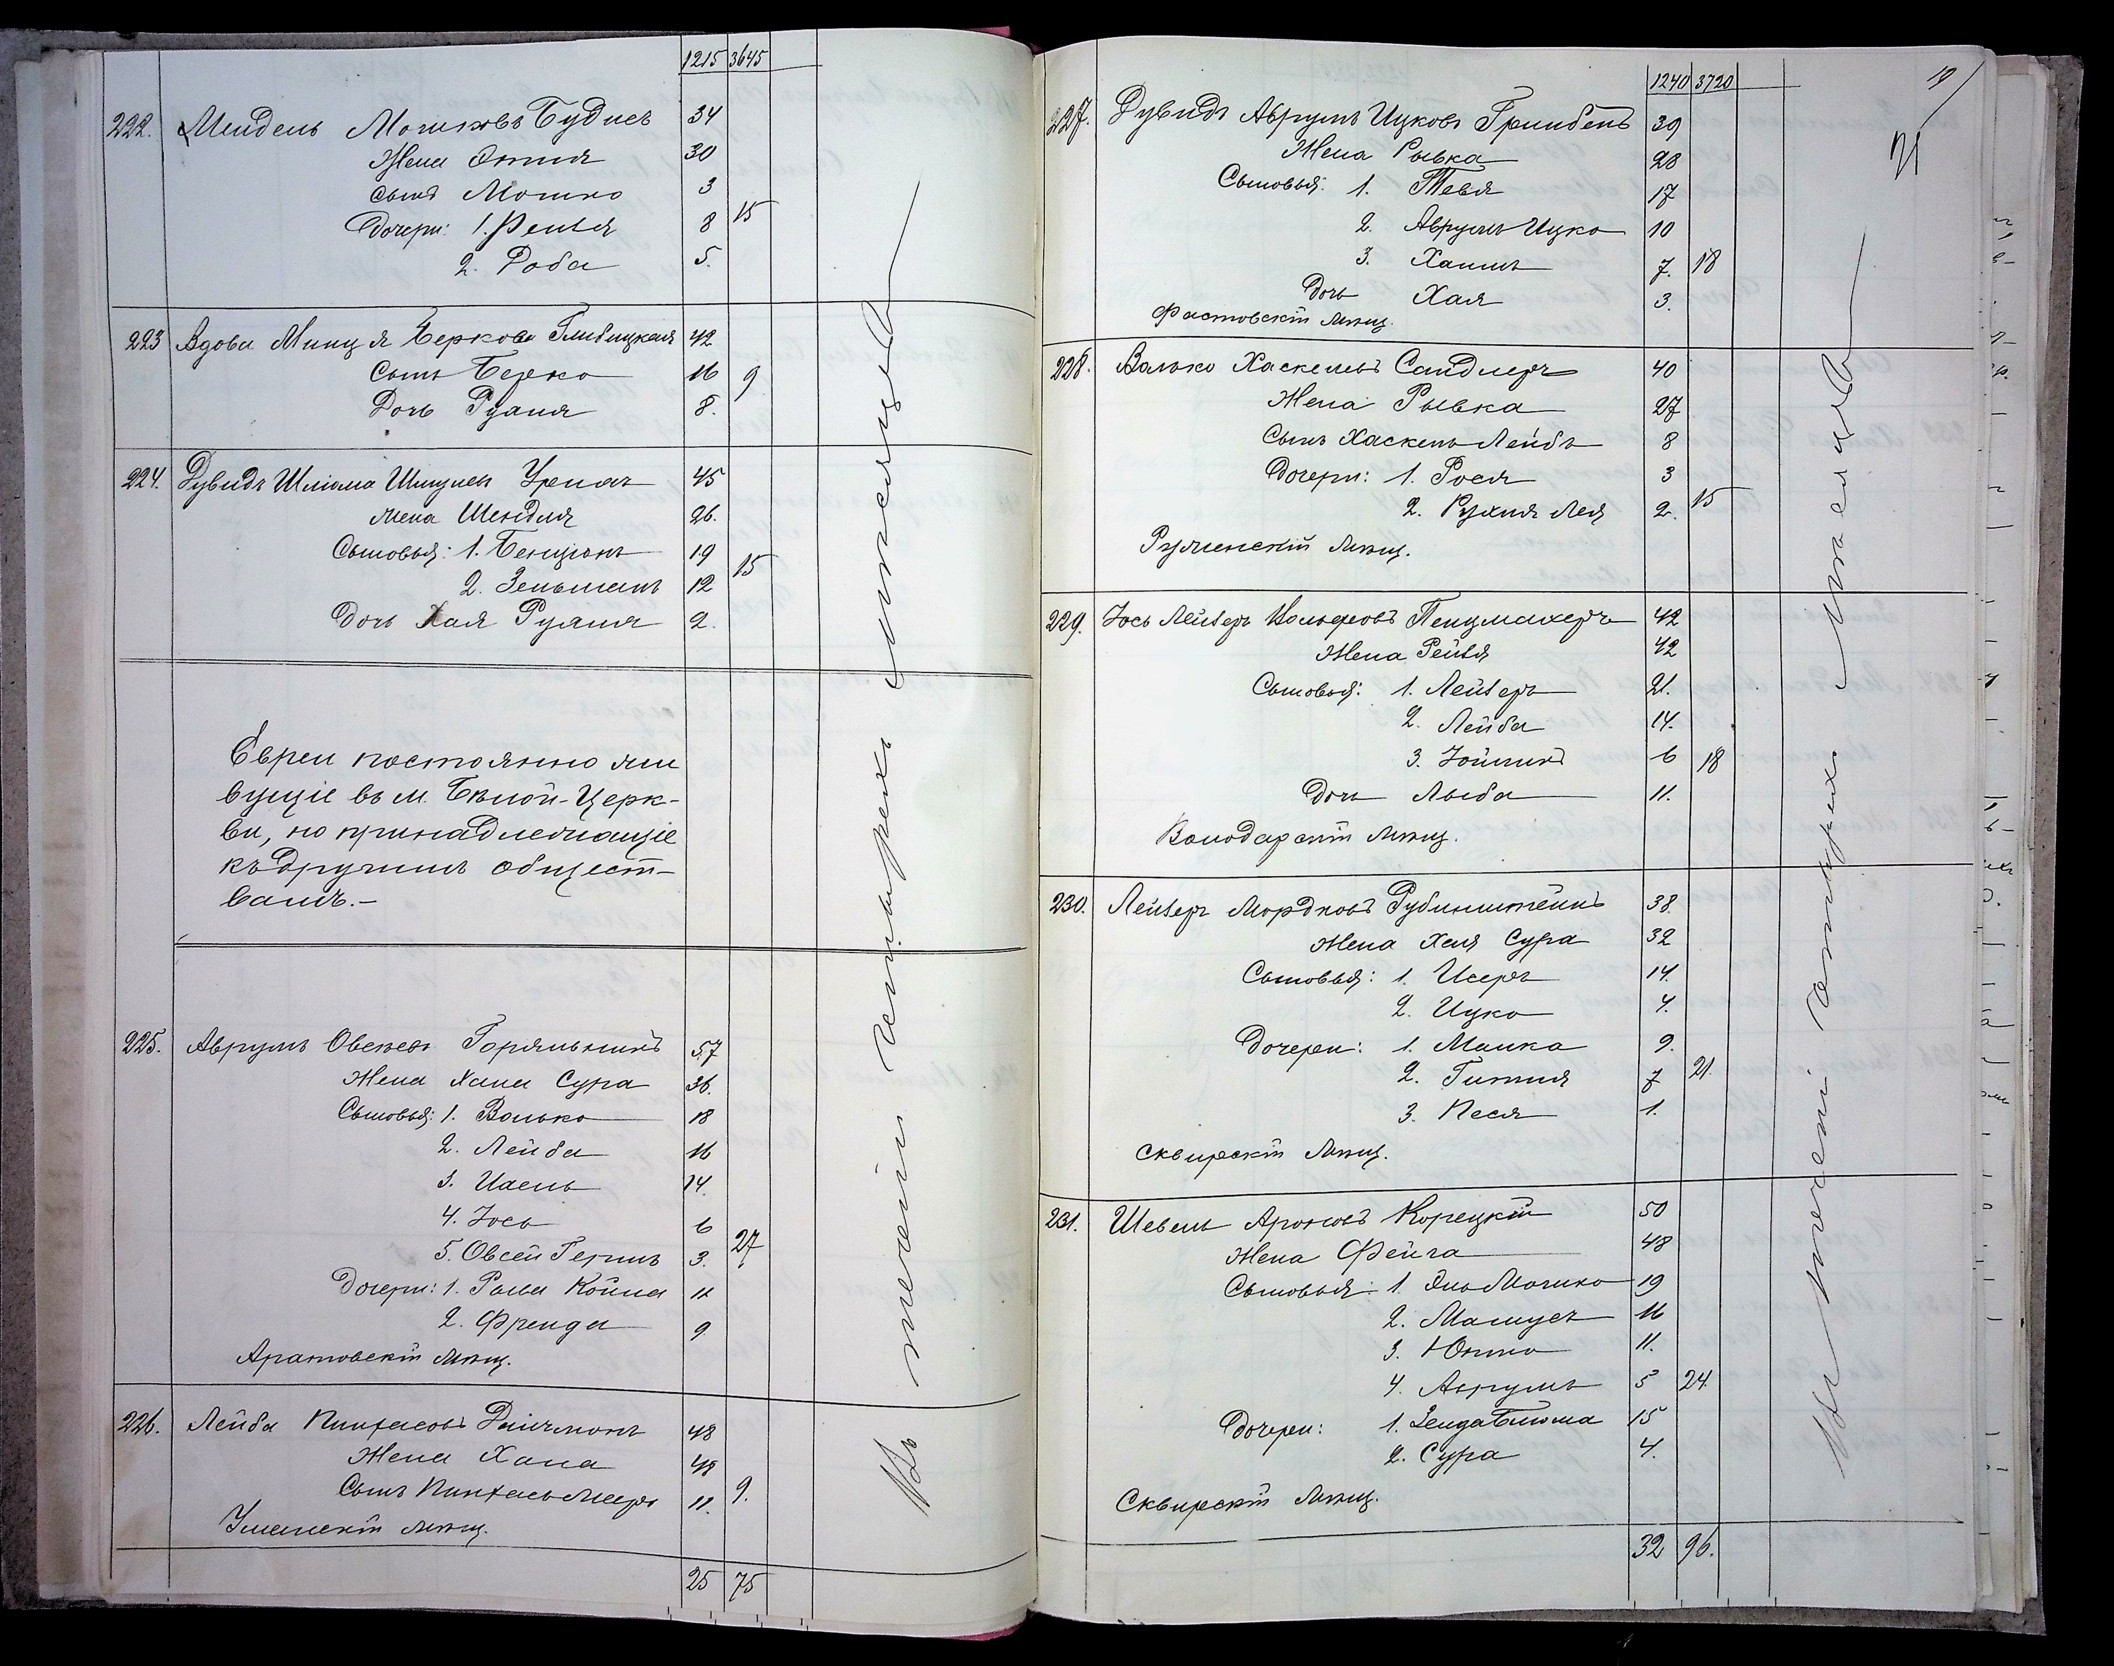 1215 3645
222. Мендель Мошковъ Будис 34
Жена Этия 30
Сынъ Мошко 3
Дочери: 1. Рейзя 8 15
2. Роба 5.
223 Вдова Минця Беркова Глибицкая 42
Сынъ Берко 16 9
Дочь Рухля 8.
224. Дувидъ Шлiома Шмулев 45
Жена Шендля 26.
Сыновья: 1. Бенцiонъ 19 15
2. Зельманъ 12
Дочь Хая Рухля 2.
Евреи постоянно жи
вущiе въ м. Бѣлой-Церк-
ви, но принадлежащiе
къ другимъ общест-
вамъ.-
225. Аврумъ Овсеев Горяльникъ 57
Жена Хана Сура 36.
Сыновья: 1. Волько 18
2. Лейба 16
3. 14.
4. Iось 6 27
5. Овсей Гершъ 3.
Дочери: 1. Койла 11
2. Фрейда 9
мѣщ.
226. Лейба Пинхасовъ 48
Жена Хана 48
Сынъ Пинхасъ Мееръ 11. 9.
Уманскiй мѣщ.
25 75
Въ теченiи четырехъ мѣсяцевъ
1240 3720
19
227. Дувидъ Аврумъ Ицковъ Гринбен 39
Жена Рывка 28
Сыновья: 1. Тевя 17
2. Аврумъ Ицко 10
3. Хаимъ 7. 18
Дочь Хая 3.
Фастовскiй мѣщ.
228. Волько Хаскелевъ Сандлеръ 40
Жена Рывка 27
Сынъ Хаскель Лейбъ 8
Дочери: 1. Рося 3
2. Рухля Лея 2. 15
мѣщ.
229. Iось Лейзеръ Вольфовъ 42
Жена Рейзя 42
Сыновья: 1. Лейзеръ 21.
2. Лейба 14.
3. Iойликъ 6 18
Дочь Люба 11.
Володарскiй мѣщ.
230. Лейзеръ Мордковъ Рубинштейнъ 38
Жена Хая Сура 32
Сыновья: 1. Исеръ 14.
2. Ицко 4.
Дочери: 1. Малка 9.
2. Гитля 7 21.
3. Песя 1.
Сквирскiй мѣщ.
231. Шевель Ароновъ Корецкiй 50
Жена Фейга 48
Сыновья: 1. Эль Мошко 19
2. 16
3. Юкто 11.
4. Аврумъ 5 24
Дочери: 1. Зельда Блюма 15
2. Сура 4.
Сквирскiй мѣщ.
32 96.
Въ теченiи четырехъ мѣсяцевъ